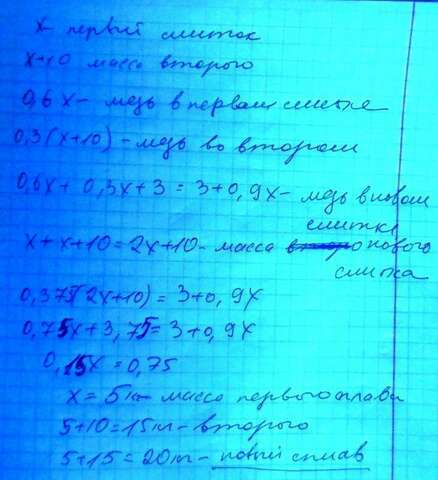 x- первый слиток
x+10 масса второго
0,6x - медь в первом слитке
0,3(x+10) - медь во втором
0,6x + 0,3x + 3 = 3 + 0,9x - медь в новом
слитке
x + x + 10 = 2x + 10 - масса нового
слитка
0,375(2x+10) = 3 + 0,9x
0,75x + 3,75 = 3 + 0,9x
0,15x = 0,75
x = 5кг масса первого сплава
5+10 = 15кг - второго
5+15 = 20кг - новый сплав